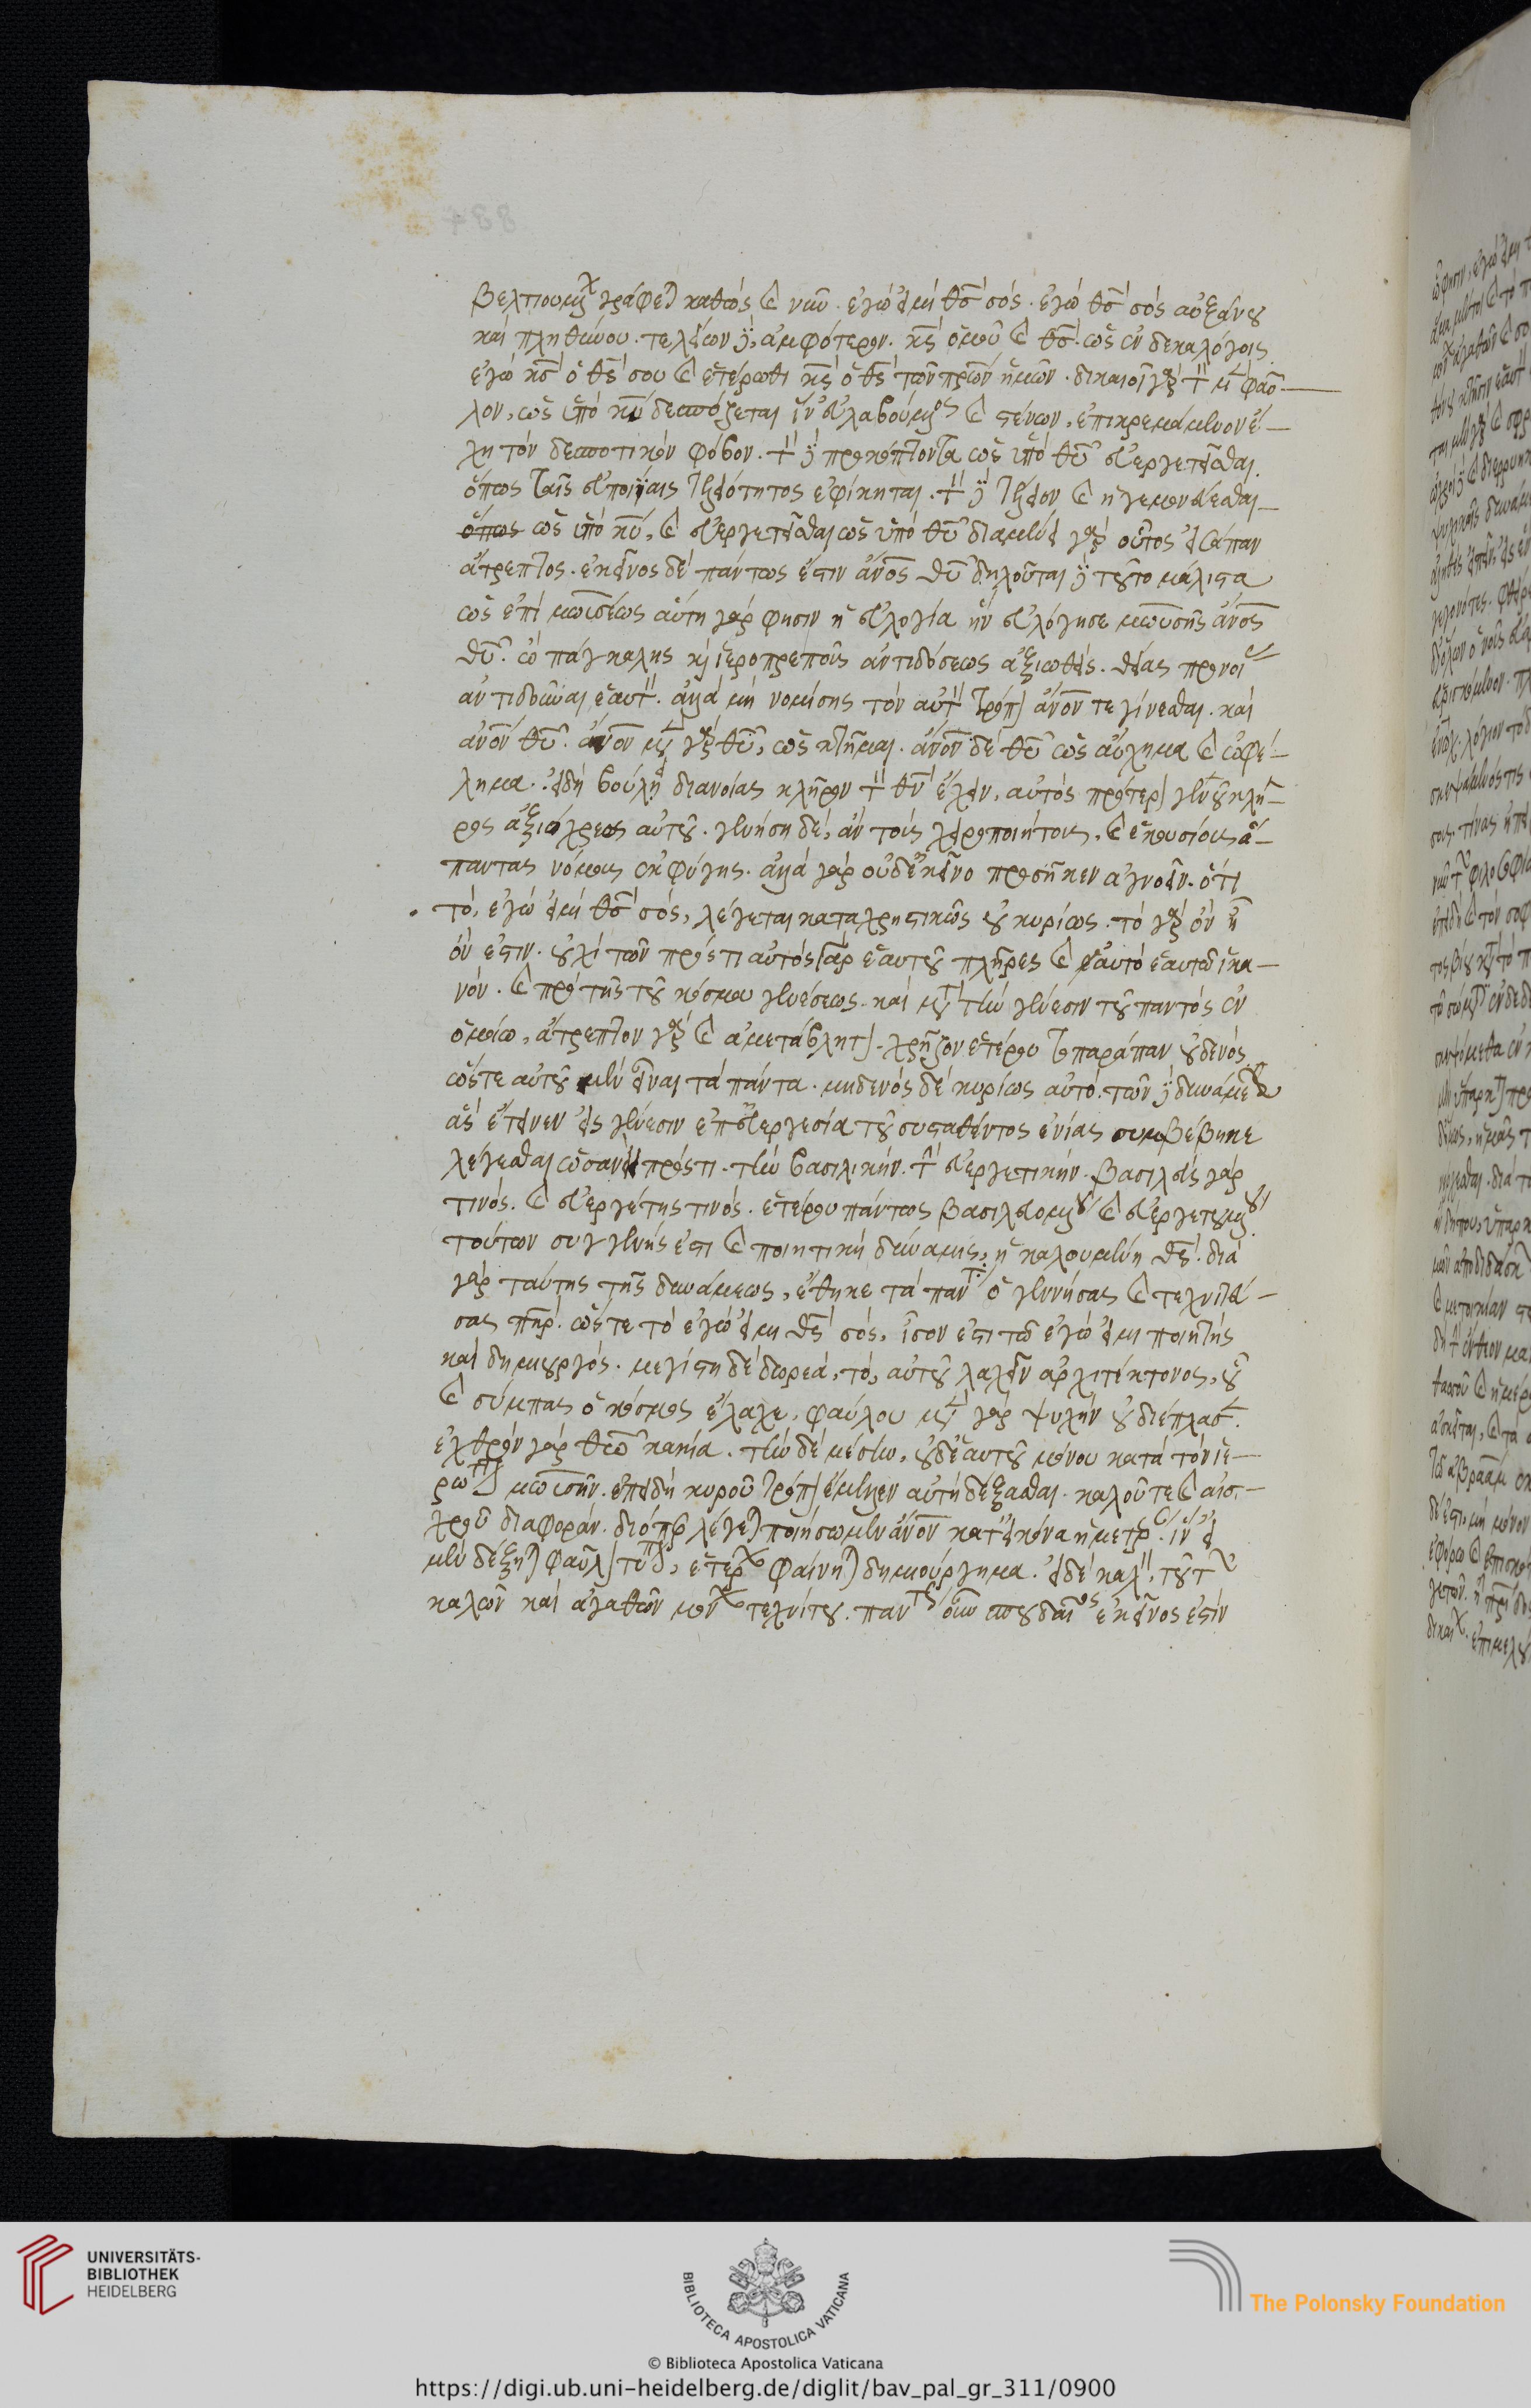 βελτιουμένων γράφεται καθὼς καὶ νῦν. ἐγώ εἰμι θς σός. ἐγὼ θς σὸς αὐξάνου
καὶ πληθύνου. τελείων δὲ, ἀμφότερον. κς ὁμοῦ καὶ θς. ὡς ἐν δεκαλόγοις
ἐγὼ κς ὁ θς σου καὶ ἑτέρωθι κς ὁ θς τῶν πρων ἡμῶν. δικαιοῖ γὰρ τὸν μὲν φαῦ-
λον, ὡς ὑπὸ κυ δεσπόζεται ἵν' εὐλαβούμενος καὶ στένων, ἐπικρεμάμενον ἔ-
χη τὸν δεσποτικὸν φόβον. τὸν δὲ προκόπτοντα ὡς ὑπὸ θυ εὐεργετεῖσθαι.
ὅπως ταῖς εὐποιΐαις τελειότητος ἐφίκηται. τὸν δὲ τέλειον καὶ ἡγεμονεύεσθαι
ὅπως ὡς ὑπὸ κυ, καὶ εὐεργετεῖσθαι ὡς ὑπὸ θυ διαμένει γὰρ οὗτος εἰσάπαν
ἄτρεπτος. ἐκεῖνος δὲ πάντως ἐστὶν ἄνος θυ δηλοῦται δὲ τοῦτο μάλιστα
ὡς ἐπὶ μωϋσέως αὕτη γάρ φησιν ἡ εὐλογία ἣν εὐλόγησε μωυσῆς ἄνος
θυ. ὢ παγκάλης καὶ ἱεροπρεποῦς ἀντιδόσεως ἀξιωθεὶς. θείας προνοίας
ἀντιδοῦναι ἑαυτόν. ἀλλὰ μὴ νομίσης τὸν αὐτὸν τρόπον ἄνον τε γίνεσθαι. καὶ
ἄνον θυ. ἄνον μὲν γὰρ θυ, ὡς κτῆμα. ἄνον δὲ θυ ὡς αὔχημα καὶ ὠφέ-
λημα. εἰ δὴ βούλει διανοίας κλῆρον τὸν θν ἔχειν, αὐτὸς πρότερον γενοῦ κλῆ-
ρος ἀξιόχρεως αὐτοῦ. γενήση δὲ, ἂν τοὺς χειροποιήτους, καὶ ἑκουσίους ἅ-
παντας νόμους ἐκφύγης. ἀλλὰ γὰρ οὐδ' ἐκεῖνο προσῆκεν ἀγνοεῖν. ὅτι
τὸ, ἐγώ εἰμι θς σὸς, λέγεται καταχρηστικῶς οὐ κυρίως. τὸ γὰρ ὂν ᾗ
ὄν ἐστιν. οὐχὶ τῶν πρός τι αὐτὸς γὰρ ἑαυτοῦ πλῆρες καὶ ἑαυτὸ ἑαυτῶ ἱκα-
νόν. καὶ πρὸ τῆς τοῦ κόσμου γενέσεως. καὶ μετὰ τὴν γένεσιν τοῦ παντὸς ἐν
ὁμοίω, ἄτρεπτον γὰρ καὶ ἀμετάβλητον. χρῇζον ἑτέρου τοπαράπαν οὐδενός
ὥστε αὐτοῦ μὲν εἶναι τὰ πάντα. μηδενὸς δὲ κυρίως αὐτό. τῶν δὲ δυνάμεων
ἃς ἔτεινεν εἰς γένεσιν ἐπ' εὐεργεσία τοῦ συσταθέντος ἐνίας συμβέβηκε
λέγεσθαι ὡσανεὶ πρός τι. τὴν βασιλικήν. τὴν εὐεργετικήν. βασιλεὺς γάρ
τινός. καὶ εὐεργέτης τινός. ἑτέρου πάντως βασιλευομένου καὶ εὐεργετουμένου.
τούτων συγγενής ἐστι καὶ ποιητικὴ δύναμις, ἡ καλουμένη θς. διὰ
γὰρ ταύτης τῆς δυνάμεως, ἔθηκε τὰ πάντα ὁ γεννήσας καὶ τεχνιτεύ-
σας πηρ. ὥστε τὸ ἐγώ εἰμι θς σός, ἴσον ἐστὶ τῶ ἐγώ εἰμι ποιητὴς
καὶ δημιουργός. μεγίστη δὲ δωρεά, τὸ, αὐτοῦ λαχεῖν ἀρχιτέκτονος, οὗ
καὶ σύμπας ὁ κόσμος ἔλαχε, φαύλου μὲν γὰρ ψυχὴν οὐ διέπλασε.
ἐχθρὸν γὰρ θεῶ κακία. τὴν δὲ μέσην, οὐ δἑαυτοῦ μόνου κατὰ τὸν ἱε-
ρώτατον μωϋσῆν. ἐπειδὴ κηροῦ τρόπον ἔμελλεν αὐτὴ δέξασθαι. καλοῦ τε καὶ αἰσ-
χροῦ διαφοράν. διόπερ λέγεται ποιήσωμεν ἄνον κατ' εἰκόνα ἡμετέραν. ἵν' εἰ
μὲν δέξηται φαῦλον τύπον, ἑτέρων φαίνηται δημιούργημα. εἰ δὲ καλὸν, τοῦ τῶν
καλῶν καὶ ἀγαθῶν μόνων τεχνίτου. πάντως οὖν σπουδαῖος ἐκεῖνός ἐστιν
UNIVERSITÄTS-
BIBLIOTHEK
HEIDELBERG
BIBLIOTECA APOSTOLICA VATICANA
The Polonsky Foundation
© Biblioteca Apostolica Vaticana
https://digi.ub.uni-heidelberg.de/diglit/bav_pal_gr_311/0900